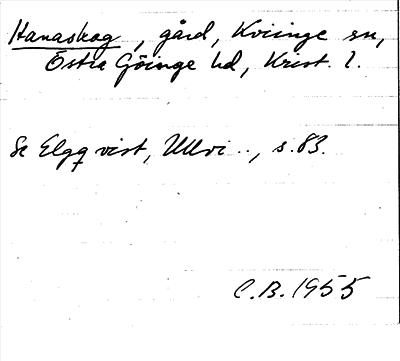 Hanaskog, gård, Kviinge sn,
Östra Göinge hd, Krist. l.
Se Elgqvist, Ullvi.., s. 83.
C.B. 1955